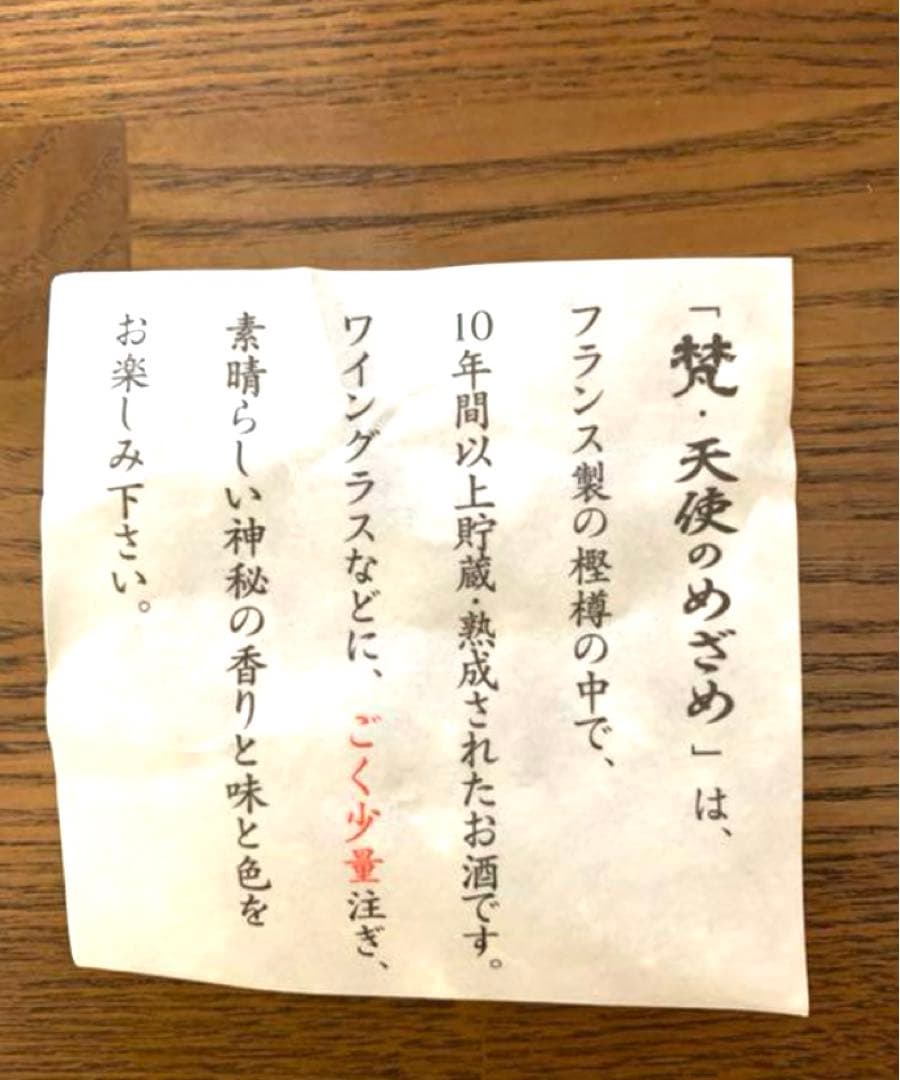 「梵・天使のめざめ」は、
フランス製の樫樽の中で、
10年間以上貯蔵・熟成されたお酒です。
ワイングラスなどに、ごく少量注ぎ、
素晴らしい神秘の香りと味と色を
お楽しみ下さい。